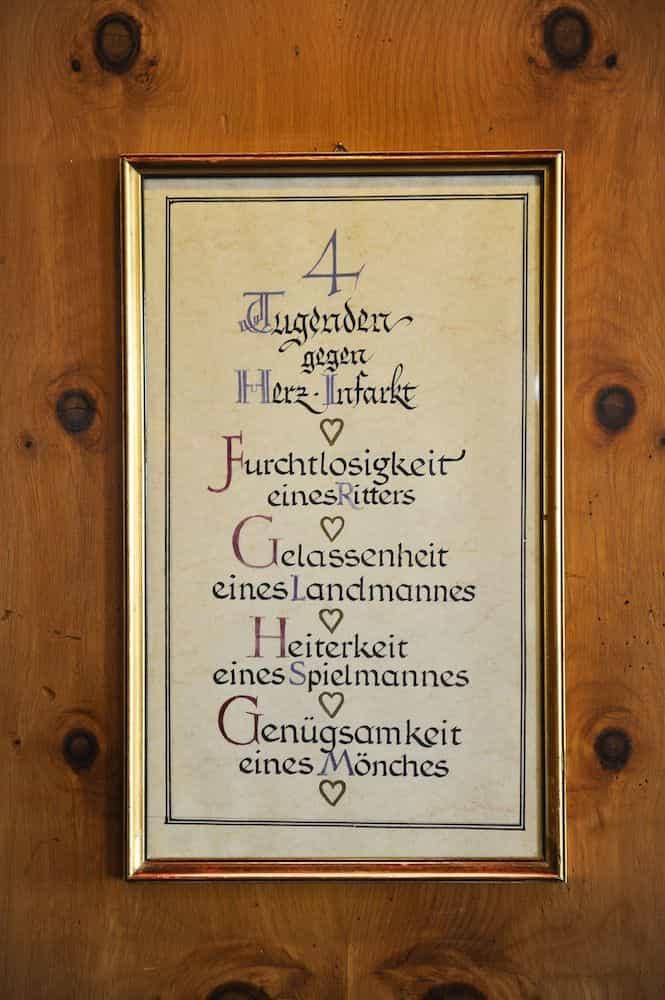 4
Tugenden
gegen
Herz-Infarkt
Furchtlosigkeit
eines Ritters
Gelassenheit
eines Landmannes
Heiterkeit
eines Spielmannes
Genügsamkeit
eines Mönches